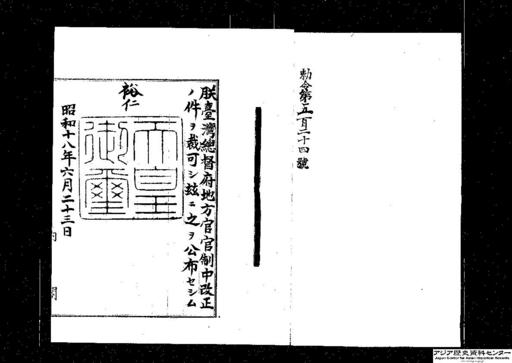 勅令第五百二十四號
朕臺灣總督府地方官官制中改正
ノ件ヲ裁可シ玆ニ之ヲ公布セシム
裕仁
天皇御璽
昭和十八年六月二十三日
内閣
アジア歴史資料センター
Japan Center for Asian Historical Records